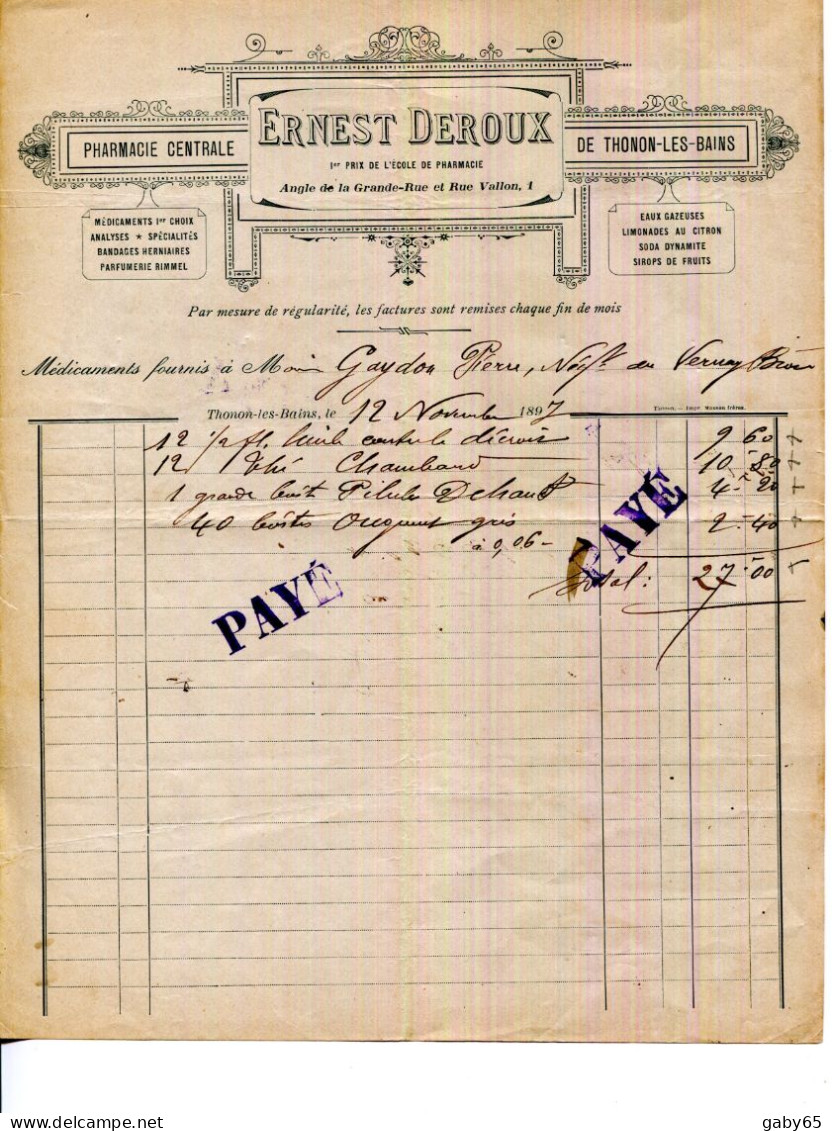 ERNEST DEROUX
PHARMACIE CENTRALE
DE THONON-LES-BAINS
1er PRIX DE L'ÉCOLE DE PHARMACIE
Angle de la Grande-Rue et Rue Vallon, 1
MÉDICAMENTS 1er CHOIX
ANALYSES ★ SPÉCIALITÉS
BANDAGES HERNIAIRES
PARFUMERIE RIMMEL
EAUX GAZEUSES
LIMONADES AU CITRON
SODA DYNAMITE
SIROPS DE FRUITS
Par mesure de régularité, les factures sont remises chaque fin de mois
Médicaments fournis à Gaydon Pierre, Négt au Vernay
Thonon-les-Bains, le 12 Novembre 1897
12 1/2 fl. huile 9 60
12 Thé Chambard 10 - 80
1 grande boîte Pilules Dehaut 4 - 20
40 boîtes Onguent gris 2 - 40
à 0,06 -
PAYÉ
Total: 27 - 00
PAYÉ
gaby65